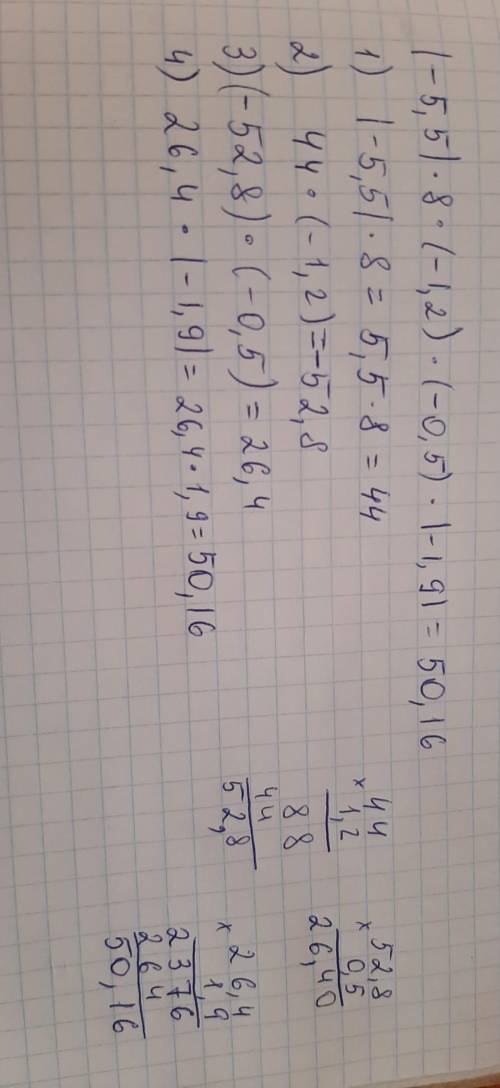 |-5,5|·8·(-1,2)·(-0,5)·|-1,9|=50,16
1) |-5,5|·8=5,5·8=44
2) 44·(-1,2)=-52,8
3) (-52,8)·(-0,5)=26,4
4) 26,4·|-1,9|=26,4·1,9=50,16
44
× 1,2
88
44
52,8
52,8
× 0,5
26,40
26,4
× 1,9
2376
264
50,16